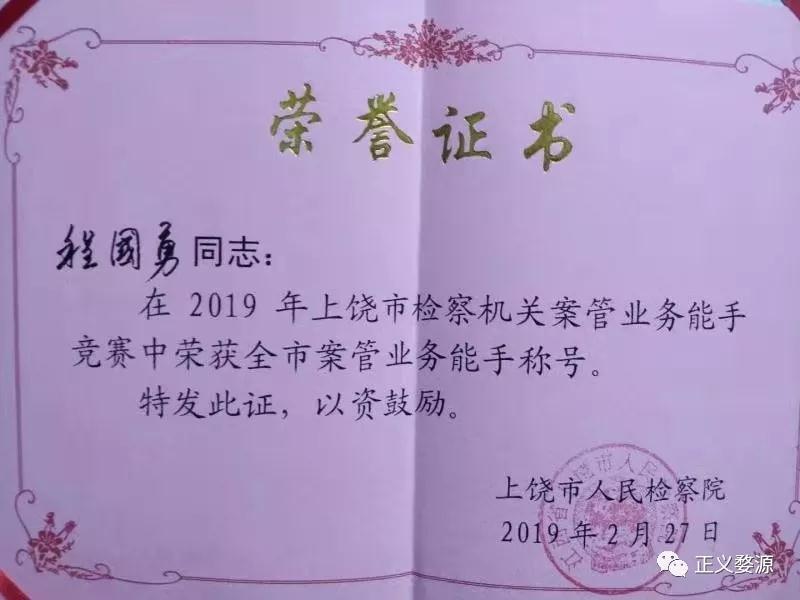 荣誉证书
程國勇同志：
在 2019 年上饶市检察机关案管业务能手
竞赛中荣获全市案管业务能手称号。
特发此证，以资鼓励。
江西省上饶市人民检察院
上饶市人民检察院
2019年2月27日
正义婺源